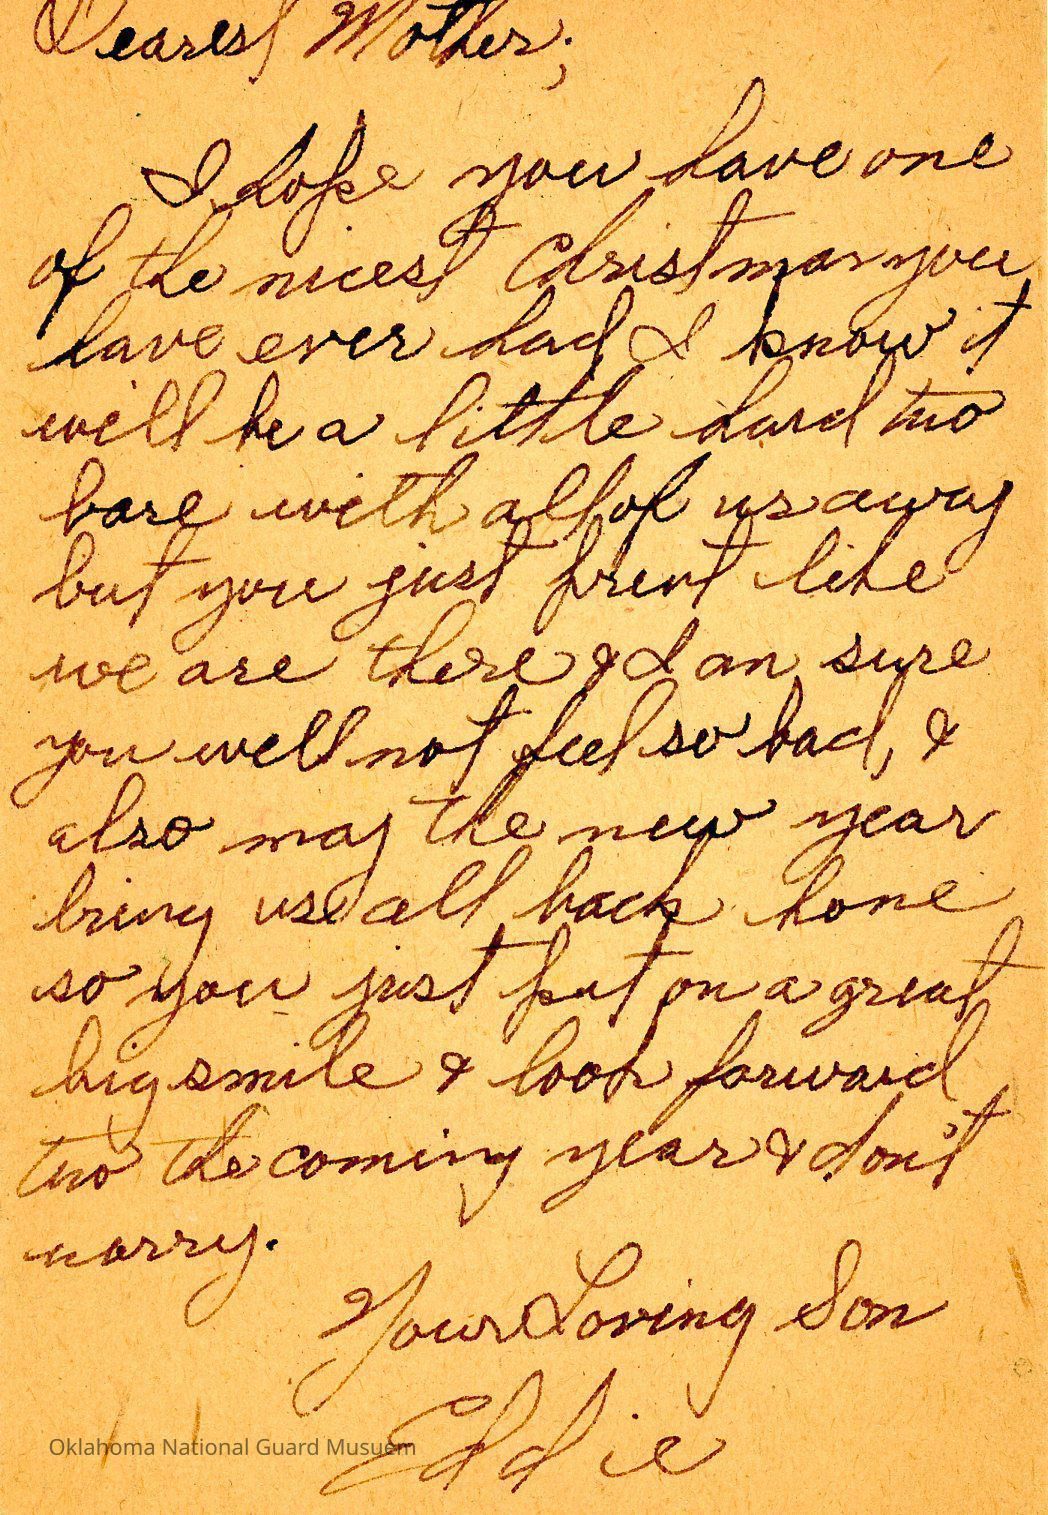 Dearest Mother;
I hope you have one
of the nicest Christmas you
have ever had, I know it
will be a little hard two
bare with all of us away
but you just pretend like
we are there & I am sure
you well not feel so bad, &
also may the new year
bring use all back home
so you just put on a great
big smile & look forward
two the coming year & don't
worry.
Your Loving Son
Eddie
Oklahoma National Guard Musuem